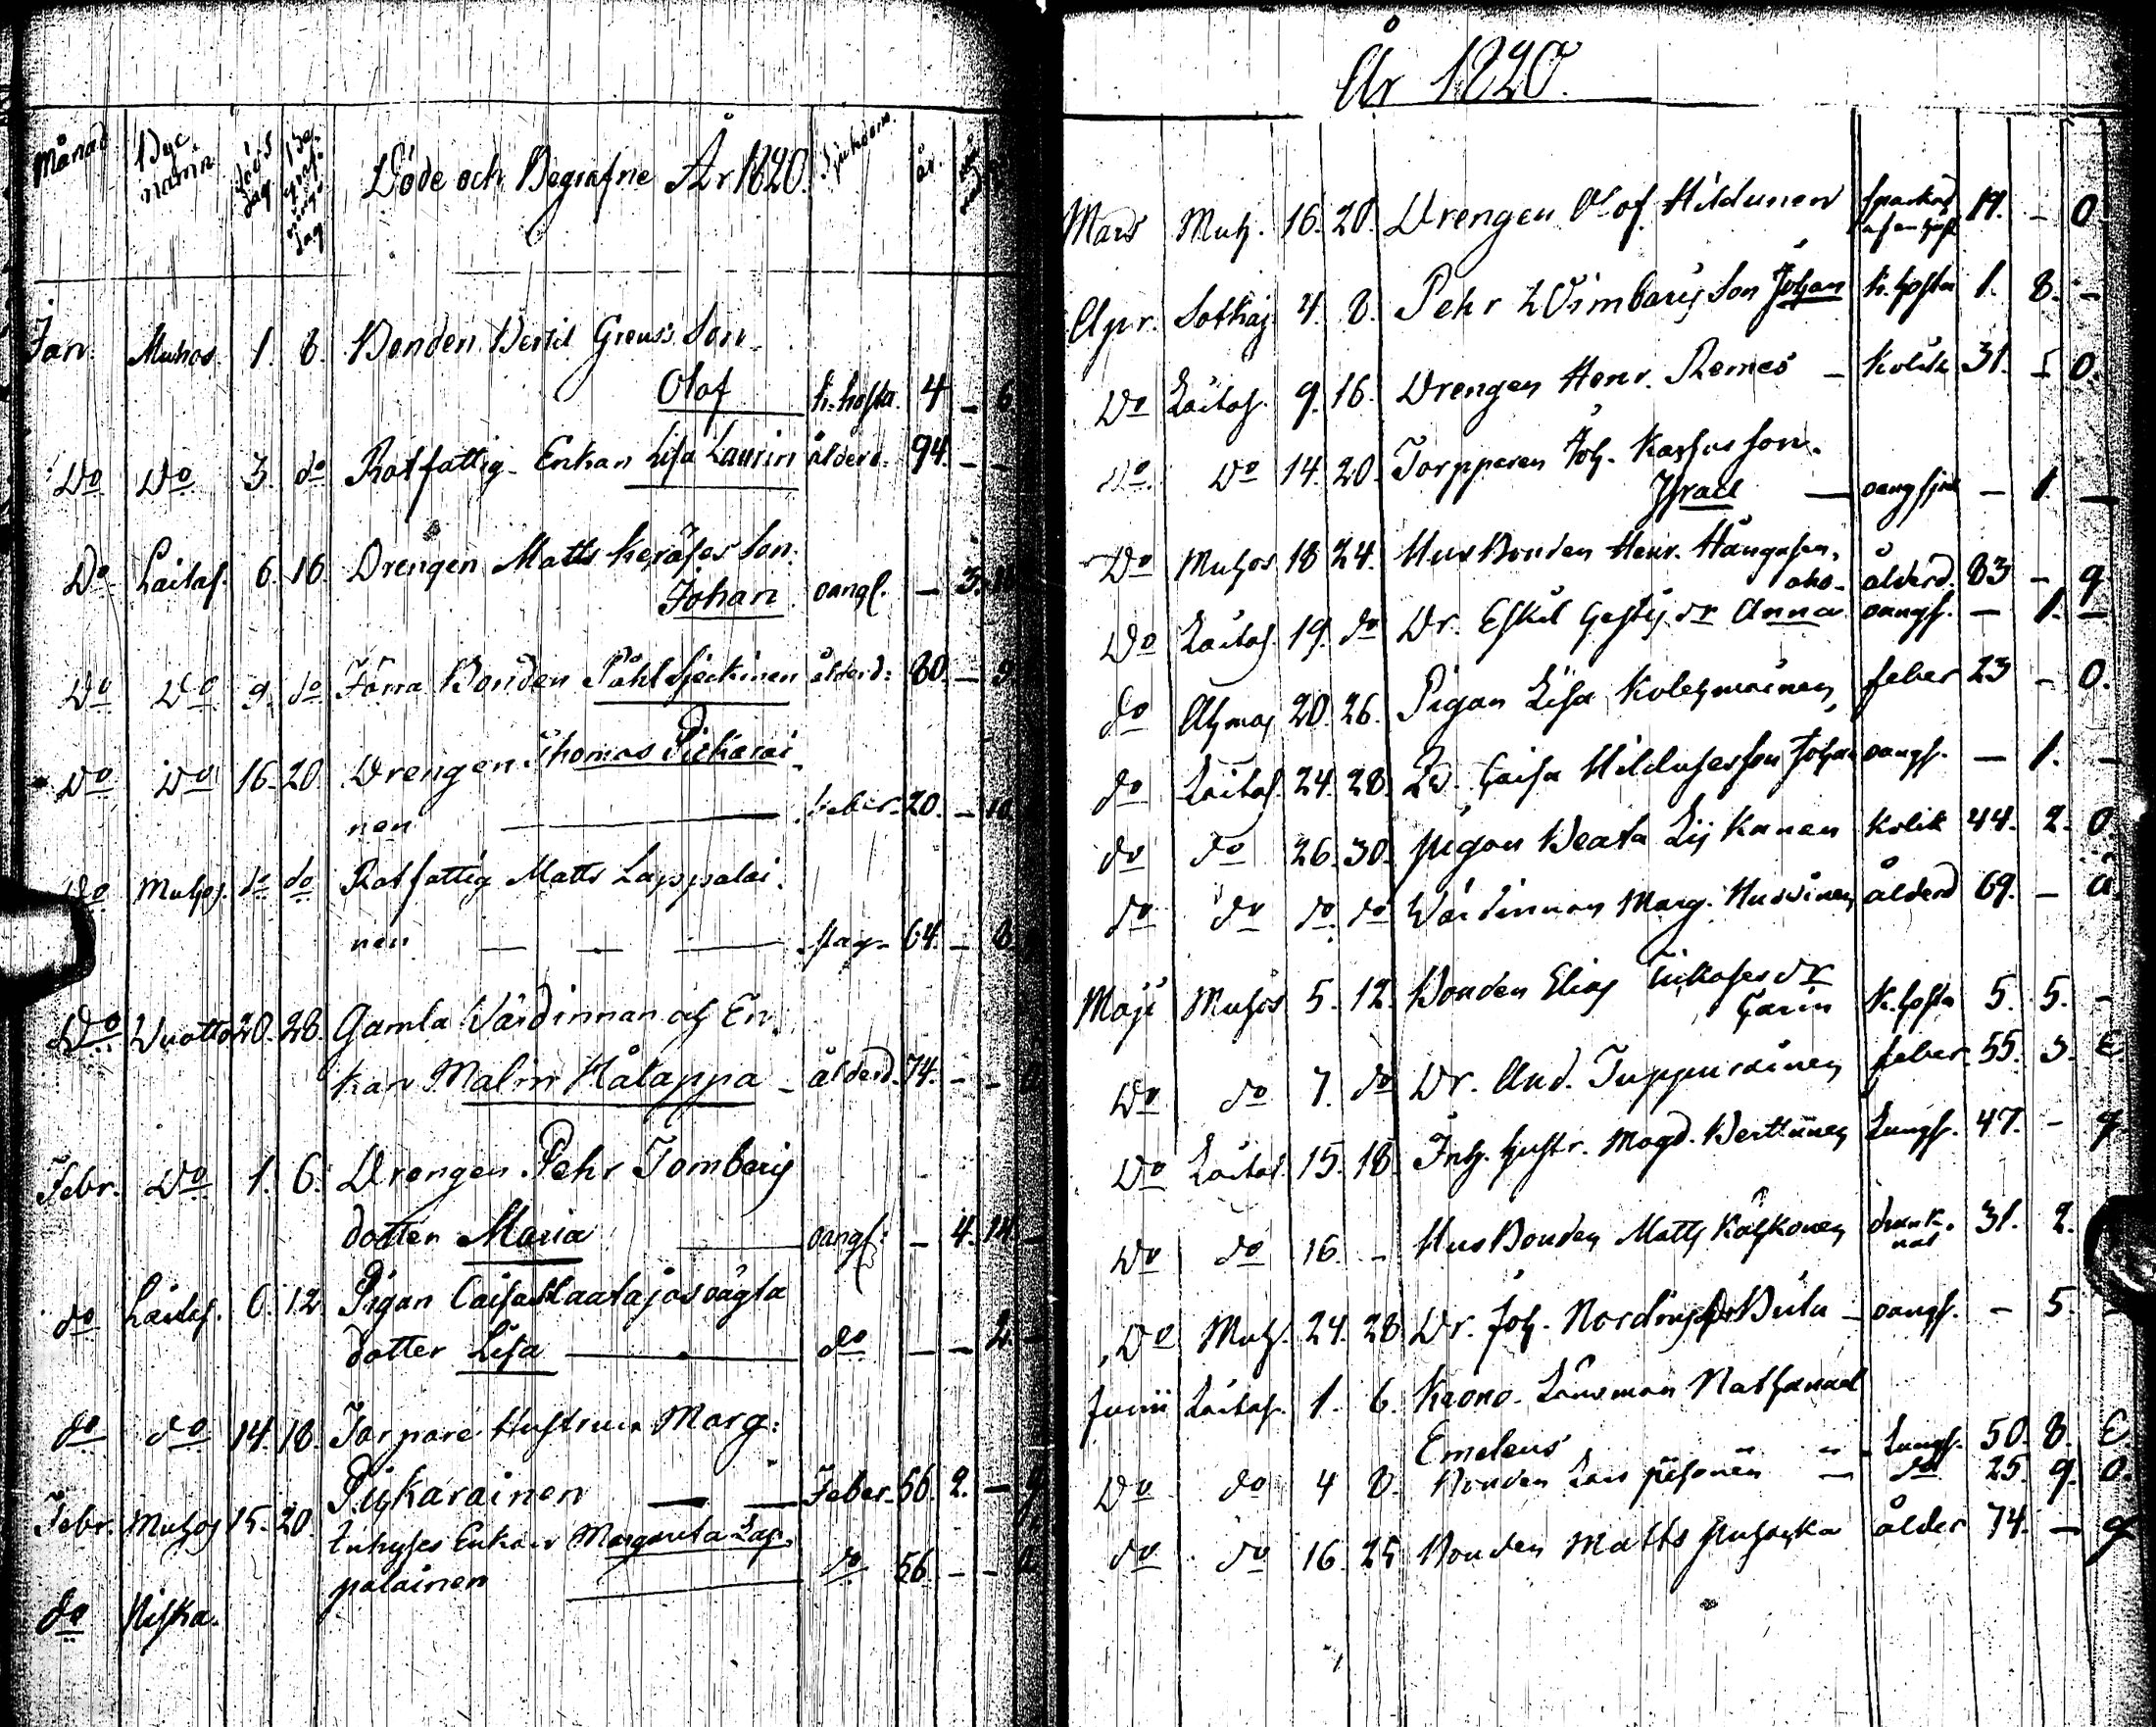 Månad Bye namn Döds dag Begrafnings dag Döde och Begrafne År 1820. Sjukdom. år.
Jan. Muhos 1. 8. Bonden Bertil Greus's Son
Olof k. hosta. 4 – 6
Do Do 3. do Rotfattig Enkan Lisa Laurin ålderd. 94. – –
Do Laitas. 6. 16. Drengen Matts Keräses Son
Johan oangf. – 3.
Do Do 9. do Förra Bonden Påhl ålderd: 80. – 9
Do Do 16. 20. Drengen Thomas Pickarai-
nen feber. 20. – 10.
Do Muhos. do do Rotfattig Matts Lappalai-
nen – – – Mag- 64. – 8.
Do Vuotto 20. 28. Gamla Wärdinnan och En-
kan Malin Hålappa – ålderd. 74. – –
Febr. Do 1. 6. Drengen Pehr Tombergs
dotter Maria oangf: – 4. 14 –
do Laitas. 6. 12. Pigan Caisa oägta
dotter Lisa do – – 2. –
do do 14. 18. Torpare Hustrun Marg:
Pijkarainen — — Feber. 56. 2. – 9
Febr. Muhos 15. 20. Inhyses Enkan Margareta Lap-
palainen do 56. – –
do Niska.
År 1820.
Mars Muh. 16. 20. Drengen Olof Hildunen sparkad af en häst 19. – 0
Apr. Sotkaj. 4. 8. Pehr Wimbergs Son Johan k. hosta 1. 8. –
Do Laitas. 9. 16. Drengen Henr. Remes – Kolik 31. – 0.
do Do 14. 20. Torpparen Joh. Son.
Israel — oangf – 1. —
Do Muhos 18 24. Husbonden Henr. Hånga-
aho- ålderd. 83 – 9
Do Laitas. 19. do Dr. Eskil dr Anna oangf. – 1. –
do Ahmas 20. 26. Pigan Lisa Kolehmainen, feber 23 – 0.
do Laitas. 24. 28. Caisa Son Johan oangf. — 1. –
do do 26. 30. pigan Beata Lijkanen Kolik 44. 2. 0.
do do do do Wärdinnan Marg. Huovinen ålderd 69. –
Maji Muhos 5. 12. Bonden Elias dr
Carin k. hosta 5. 5. –
Do do 7. do Dr. And. Tuppurainen feber. 55. 3. E
Do Laitas. 15. 18. Inh. hustr. Magd. Verttunen Lungs. 47. – 9
Do do 16. – Husbonden Matts Karhkonen drunk-
nat 31. 2.
Do Muh. 24. 28. Dr. Joh. dr Beata – oangf. – 5. –
Junii Laitas. 1. 6. Krono Länsman Nathanael
Emeleus – Lungs. 50. 8. E.
Do do 4 8. Bonden Lars – do 25. 9. 0.
do do 16 25 Bonden Matts ålder 74. — 9